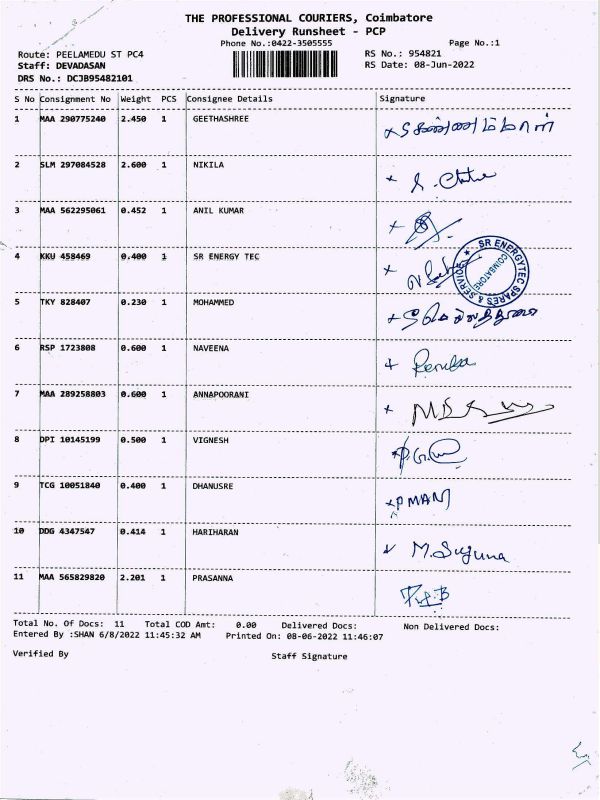 THE PROFESSIONAL COURIERS, Coimbatore
Delivery Runsheet - PCP
Phone No.:0422-3505555
Page No.:1
Route: PEELAMEDU ST PC4
RS No.: 954821
Staff: DEVADASAN
RS Date: 08-Jun-2022
DRS No.: DCJB95482101
S No Consignment No Weight PCS Consignee Details Signature
1 MAA 290775240 2.450 1 GEETHASHREE
2 SLM 297084528 2.600 1 NIKILA
3 MAA 562295061 0.452 1 ANIL KUMAR
4 KKU 458469 0.400 1 SR ENERGY TEC
SR ENERGYTEC SPARES & SERVICE
COIMBATORE
5 TKY 828407 0.230 1 MOHAMMED
6 RSP 1723808 0.600 1 NAVEENA Renuka
7 MAA 289258803 0.600 1 ANNAPOORANI
8 DPI 10145199 0.500 1 VIGNESH
9 TCG 10051840 0.400 1 DHANUSRE
10 DDG 4347547 0.414 1 HARIHARAN M.Suguna
11 MAA 565829820 2.201 1 PRASANNA
Total No. Of Docs: 11 Total COD Amt: 0.00 Delivered Docs: Non Delivered Docs:
Entered By :SHAN 6/8/2022 11:45:32 AM Printed On: 08-06-2022 11:46:07
Verified By Staff Signature